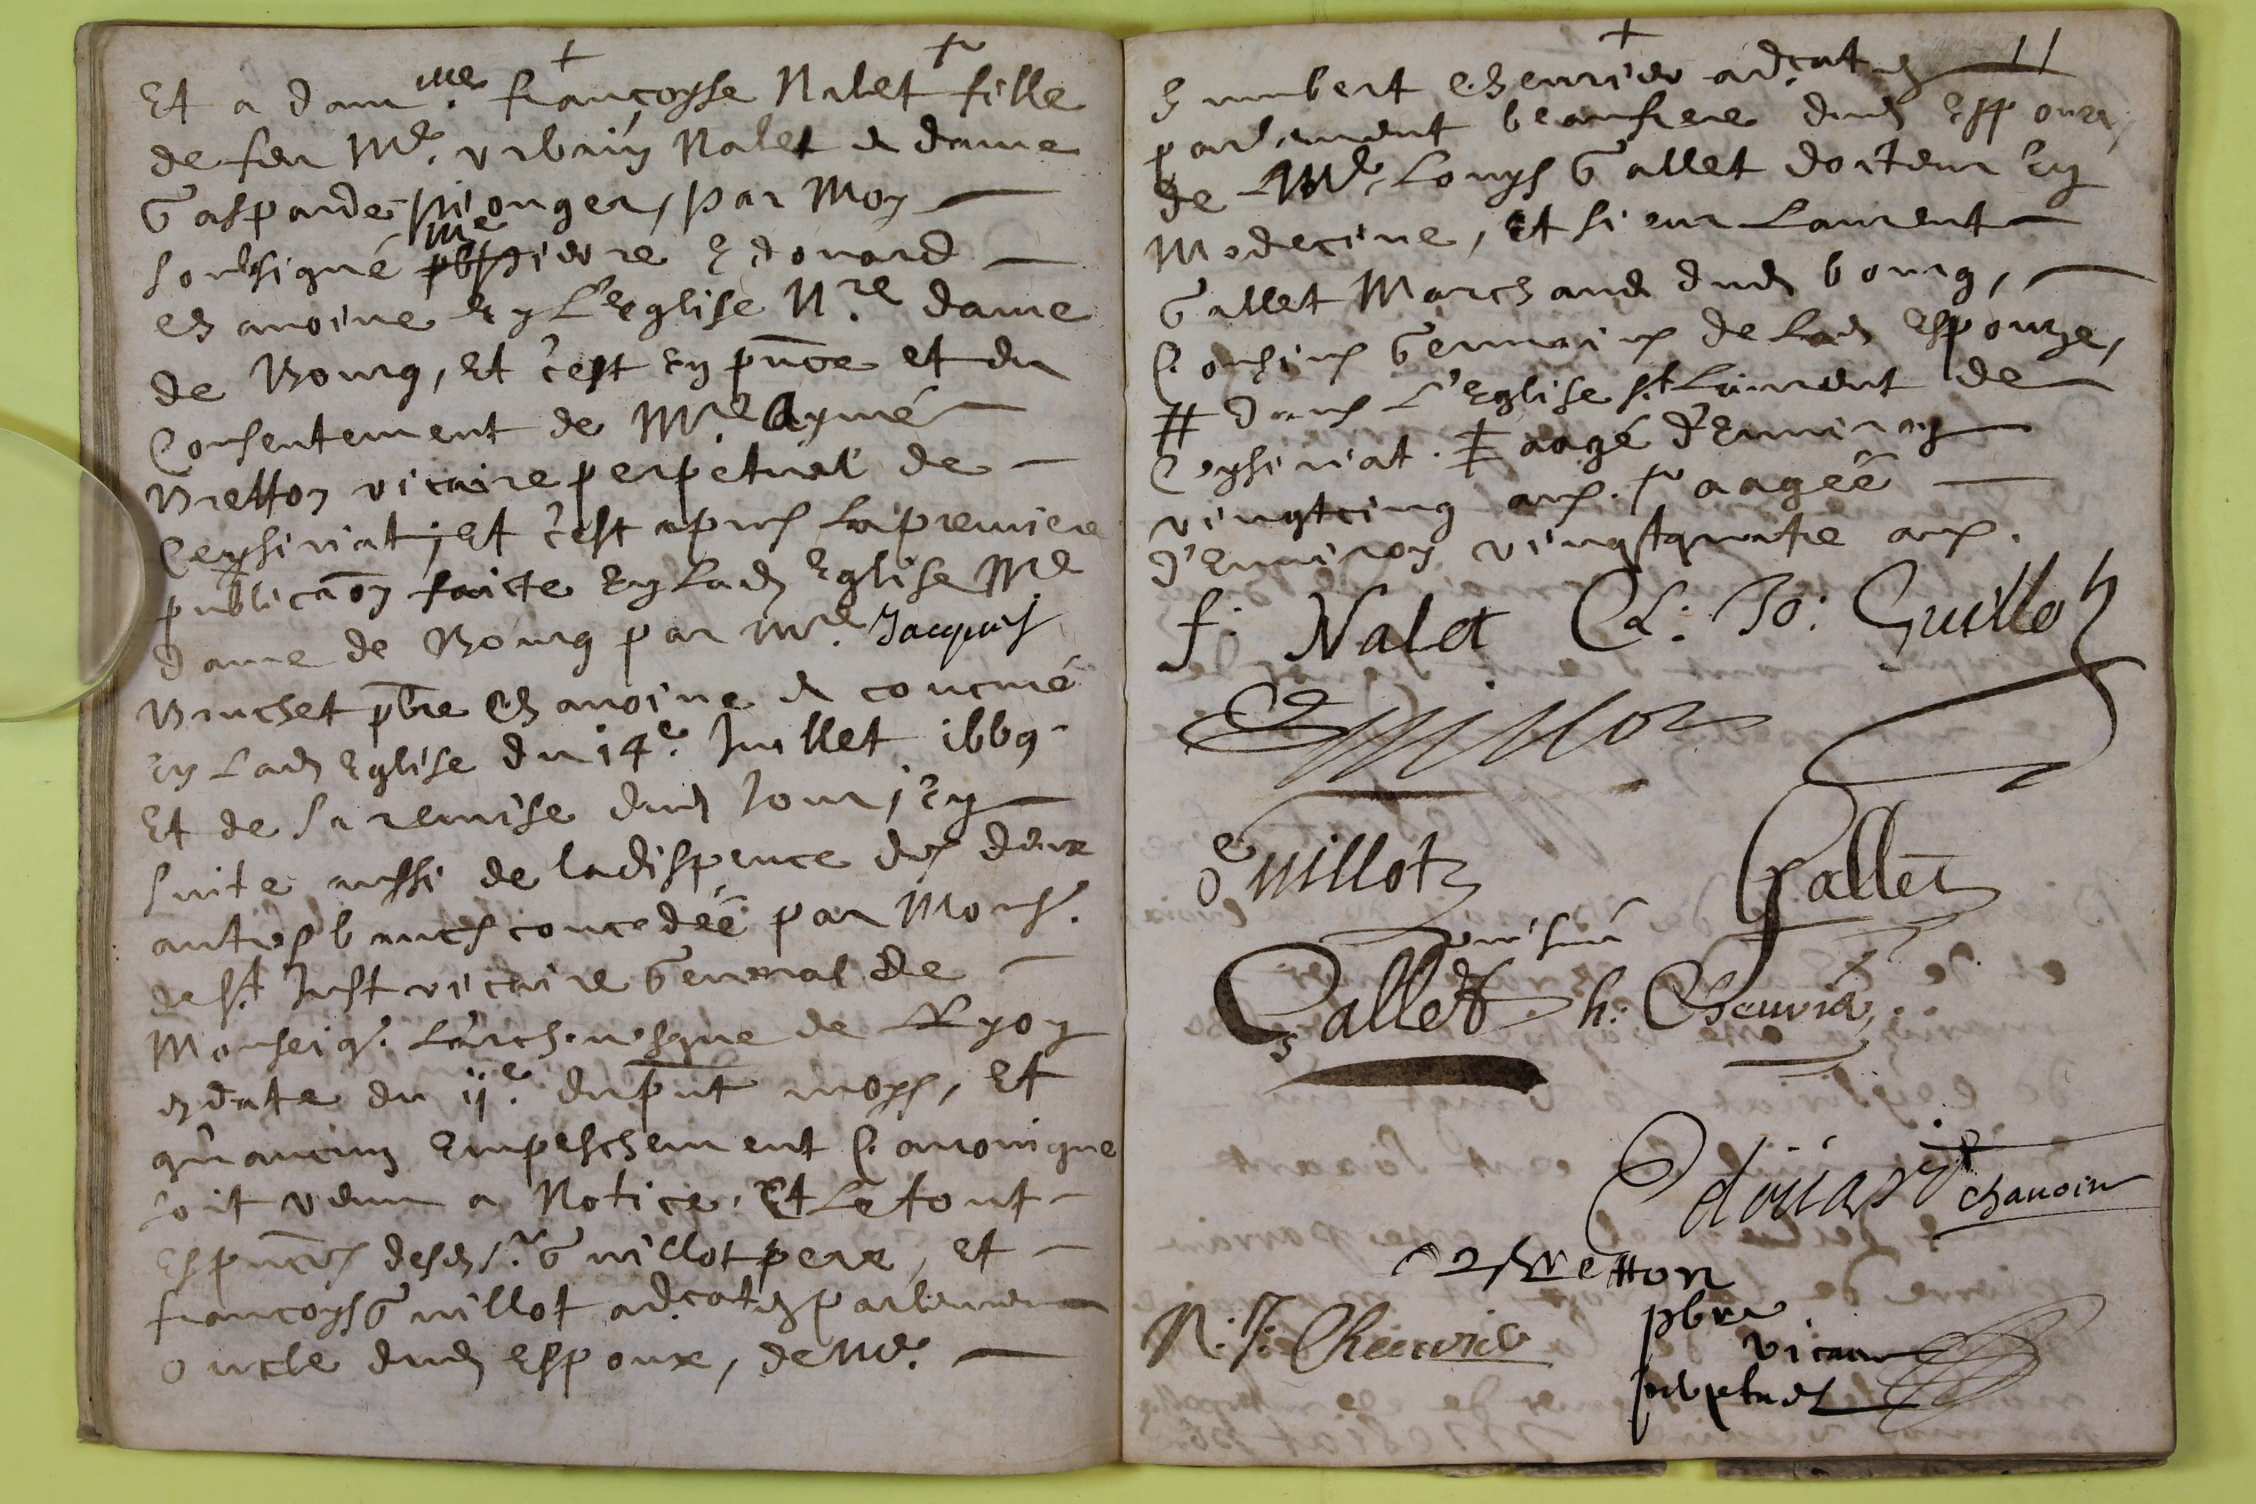 Et a dam.lle françoyse Nalet fille
de feu Mr. vrbain Nalet & dame
Gasparde pionger, par Moy
soubsigné pbr me pierre Edouard
Chanoine En L'Eglise N.re dame
de Bourg, Et c'est En pnce et du
Consentement de Mre Aymé
Bretton vicaire perpetuel de
Ceysiriat, Et c'est apres la premiere
publicaon faicte En lad Eglise Nre
dame de Bourg par Mre. Jacques
Bruchet pbre Chanoine & concuré
En lad Eglise du 14e. Juillet 1669
Et de sa remise dud Jour, En
suite aussi de la dispence des deux
autres bancs concedée par Mons.
de St Just vicaire General de
Monseigr. L'archevesque de Lyon
en date du ije. du pnt moys, Et
qu'aucun Empeschement Canonique
soit venu a Notice. Et Le tout
Es pnces desd sr. Guillot pere, Et
francoys Guillot adcat en parlement
oncle dud Espoux, de Mre.
humbert Chevrier adcat en 11
parlement beaufrere dud Espoux,
de Mre Louys Gallet docteur En
Medecine, Et sieur Laurent
Gallet Marchand dud bourg,
Cousins Germains de lad Espouze,
# dans L'Eglise St Laurent de
Ceysiriat. ‡ aagé d'Enuiron
vingtcinq ans. aagée
d'Enuiron vingtquatre ans.
f. Nalet Cl: Jo: Guillot
Guillot
Guillot Gallet
Gallet h: Cheuvrier
Edoüard chanoine
Bretton
pbre
vicaire
perpetuel
N. F. Cheuvrier